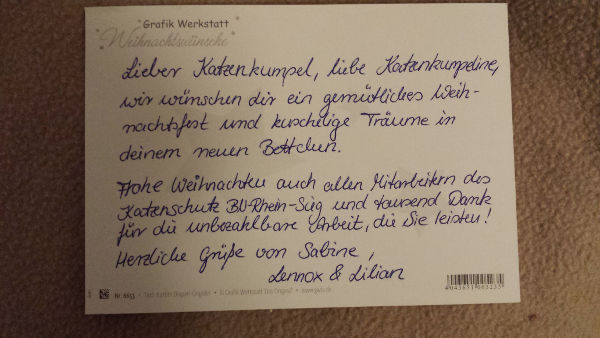 Grafik Werkstatt
Weihnachtswünsche
Lieber Katzenkumpel, liebe Katzenkumpeline,
wir wünschen dir ein gemütliches Weih-
nachtsfest und kuschelige Träume in
deinem neuen Bettchen.
Frohe Weihnachten auch allen Mitarbeitern des
Katzenschutz BN-Rhein-Sieg und tausend Dank
für die unbezahlbare Arbeit, die Sie leisten!
Herzliche Grüße von Sabine,
Lennox & Lilian
Nr. 6653 • © Grafik Werkstatt